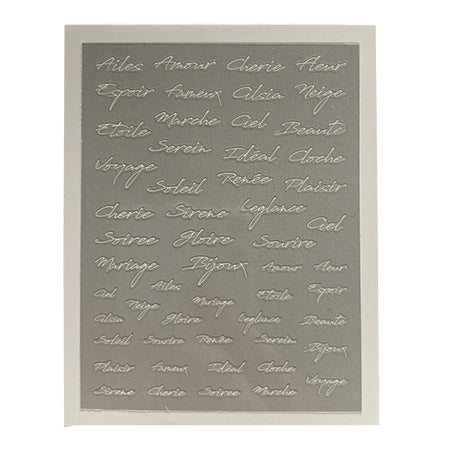 Ailes Amour Cherie Fleur
Espoir Fameux Cilsia Neige
Etoile Marche Ciel Beaute
Voyage Serein Idéal Cloche
Soleil Renée Plaisir
Cherie Sirene Leglance Ciel
Soiree Gloire Sourire
Mariage Bijoux Amour Fleur
Ciel Ailes Etoile Espoir
Neige Mariage
Cilsia Gloire Leglance Beaute
Soleil Sourire Renée Serein Bijoux
Plaisir Fameux Idéal Cloche
Sirene Cherie Soiree Marche Voyage